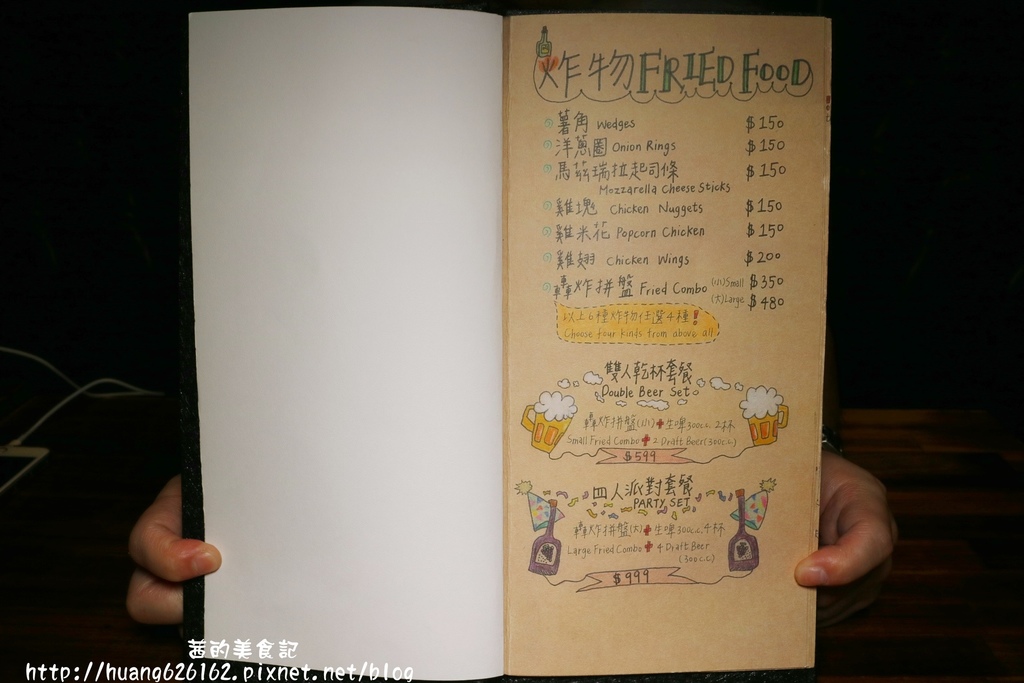 炸物 FRIED FOOD
薯角 Wedges $150
洋蔥圈 Onion Rings $150
馬茲瑞拉起司條 $150
Mozzarella Cheese Sticks
雞塊 Chicken Nuggets $150
雞米花 Popcorn Chicken $150
雞翅 Chicken Wings $200
轟炸拼盤 Fried Combo (小)Small $350
(大)Large $480
以上6種炸物任選4種!
Choose four kinds from above all
雙人乾杯套餐
Double Beer Set
轟炸拼盤(小)+生啤300c.c. 2杯
Small Fried Combo + 2 Draft Beer(300c.c)
$599
四人派對套餐
PARTY SET
轟炸拼盤(大)+生啤300c.c. 4杯
Large Fried Combo + 4 Draft Beer
(300c.c)
$999
茜的美食記
http://huang626162.pixnet.net/blog